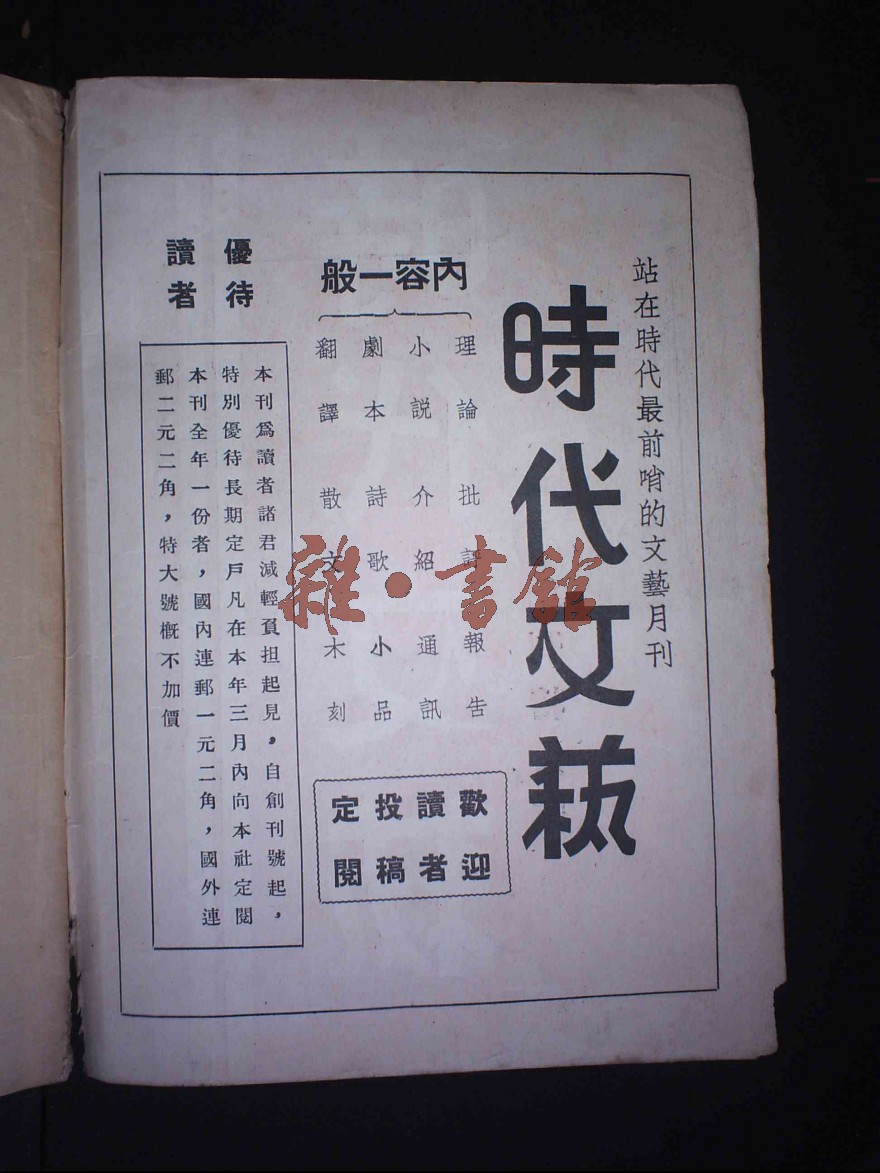 站在時代最前哨的文藝月刊
時代文藝
內容一般
理論 批評 報告
小說 介紹 通訊
劇本 詩歌 小品
翻譯 散文 木刻
歡迎
讀者
投稿
定閱
優待
讀者
本刊爲讀者諸君減輕負担起見，自創刊號起，
特別優待長期定戶凡在本年三月內向本社定閱
本刊全年一份者，國內連郵一元二角，國外連
郵二元二角，特大號概不加價
雜·書館